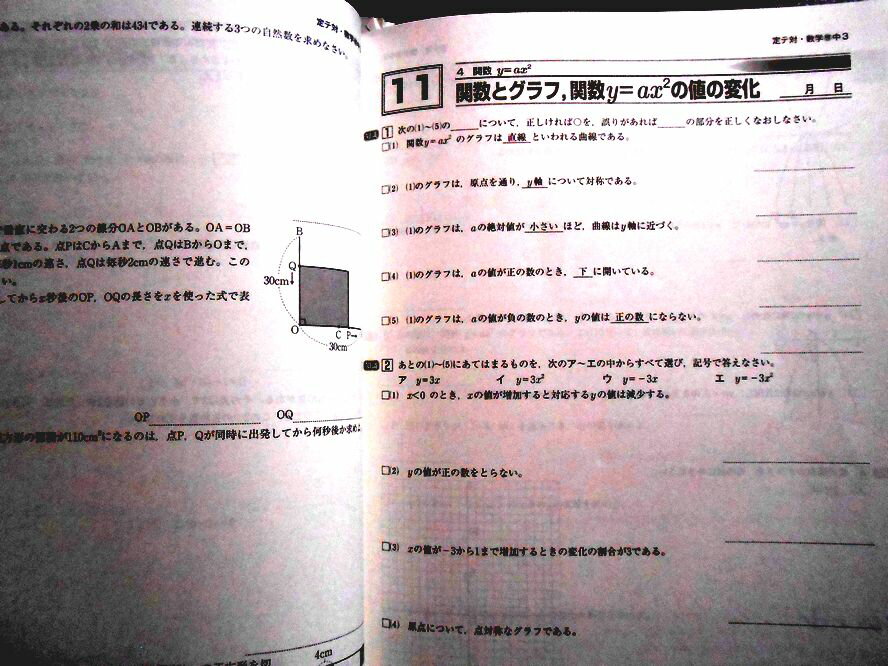 ある。それぞれの2乗の和は434である。連続する3つの自然数を求めなさい。
垂直に交わる2つの線分OAとOBがある。OA=OB
点である。点PはCからAまで，点QはBからOまで，
秒1cmの速さ，点Qは毎秒2cmの速さで進む。この
い。
してからx秒後のOP，OQの長さをxを使った式で表
B
Q
30cm
O
C P→
30cm
OP OQ
が110cm²になるのは，点P，Qが同時に出発してから何秒後か求め
4cm
定テ対・数学③中3
11
4 関数 y=ax²
関数とグラフ，関数y=ax²の値の変化
月 日
1 次の(1)～(5)の＿＿＿について，正しければ○を，誤りがあれば＿＿＿の部分を正しくなおしなさい。
□(1) 関数y=ax² のグラフは 直線 といわれる曲線である。
□(2) (1)のグラフは，原点を通り，y軸 について対称である。
□(3) (1)のグラフは，aの絶対値が 小さい ほど，曲線はy軸に近づく。
□(4) (1)のグラフは，aの値が正の数のとき， 下 に開いている。
□(5) (1)のグラフは，aの値が負の数のとき，yの値は 正の数 にならない。
2 あとの(1)～(5)にあてはまるものを，次のア～エの中からすべて選び，記号で答えなさい。
ア y=3x イ y=3x² ウ y=-3x エ y=-3x²
□(1) x<0 のとき，xの値が増加すると対応するyの値は減少する。
□(2) yの値が正の数をとらない。
□(3) xの値が-3から1まで増加するときの変化の割合が3である。
□(4) 原点について，点対称なグラフである。